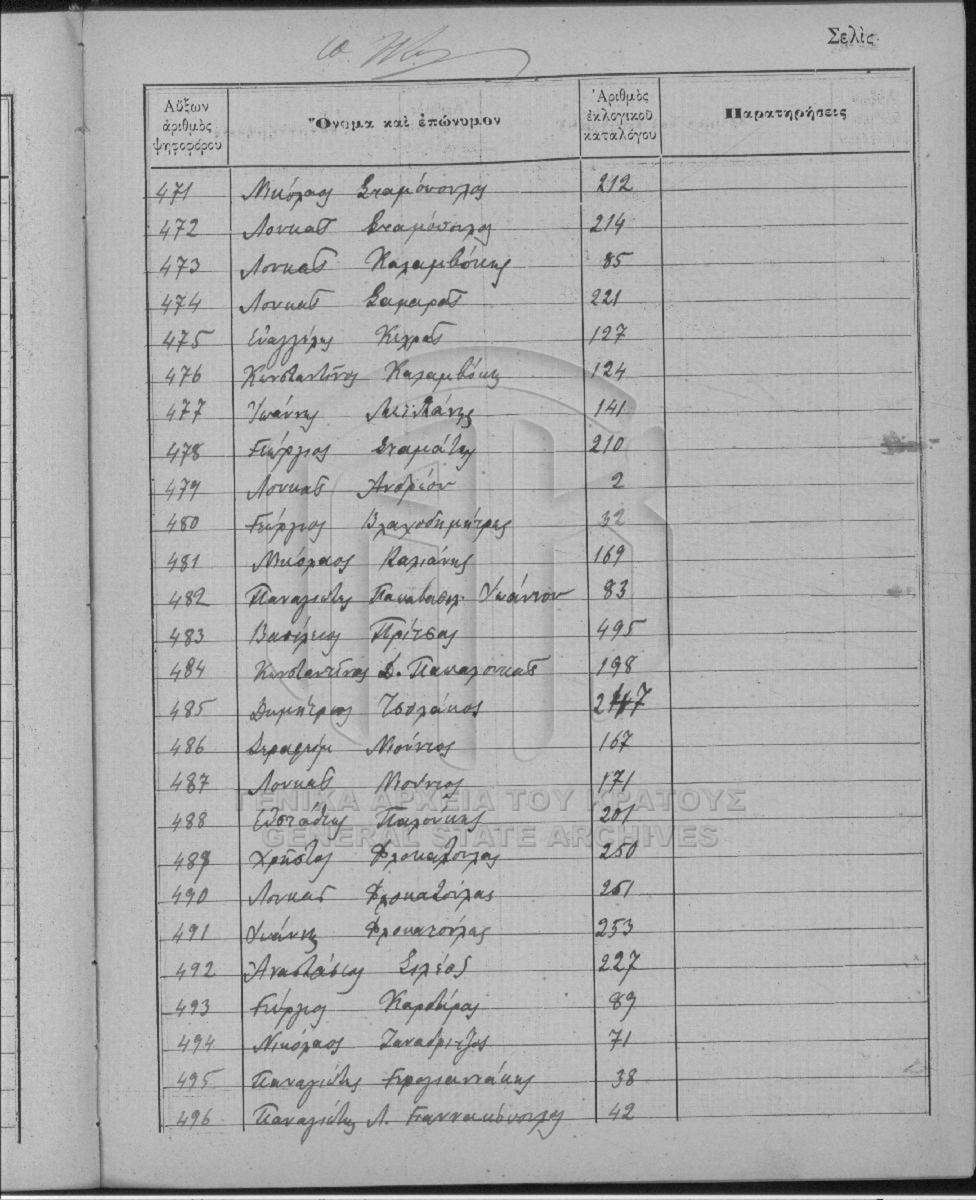 Σελὶς
Αὔξων ἀριθμὸς ψηφοφόρου Ὄνομα καὶ ἐπώνυμον Ἀριθμὸς ἐκλογικοῦ καταλόγου Παρατηρήσεις
471 Νικόλαος Σταμόπουλος 212
472 Λουκᾶς Σταμόπουλος 214
473 Λουκᾶς Καλαμβόκης 85
474 Λουκᾶς Σαμαρᾶς 221
475 Εὐαγγέλης Κεχρᾶς 127
476 Κωνσταντῖνος Καλαμβόκης 124
477 Ἰωάννης 141
478 Γεώργιος Σταμάτης 210
479 Λουκᾶς Ἀνδρέου 2
480 Γεώργιος Βλαχοδημήτρης 32
481 Νικόλαος 169
482 Παναγιώτης Ἰωάννου 83
483 Βασίλειος Πρίτσας 495
484 Κωνσταντῖνος Δ. Παπαλουκᾶς 198
485 Δημήτριος Τσολάκος 247
486 Σεραφείμ Μούντος 167
487 Λουκᾶς Μούντος 171
ΓΕΝΙΚΑ ΑΡΧΕΙΑ ΤΟΥ ΚΡΑΤΟΥΣ
488 Εὐστάθιος Παλούκης 201
GENERAL STATE ARCHIVES
489 Χρῆστος Φλοκατούλας 250
490 Λουκᾶς Φλοκατούλας 251
491 Ἰωάννης Φλοκατούλας 253
492 Ἀναστάσιος 227
493 Γεώργιος 89
494 Νικόλαος 71
495 Παναγιώτης 38
496 Παναγιώτης Λ. Γιαννακόπουλος 42